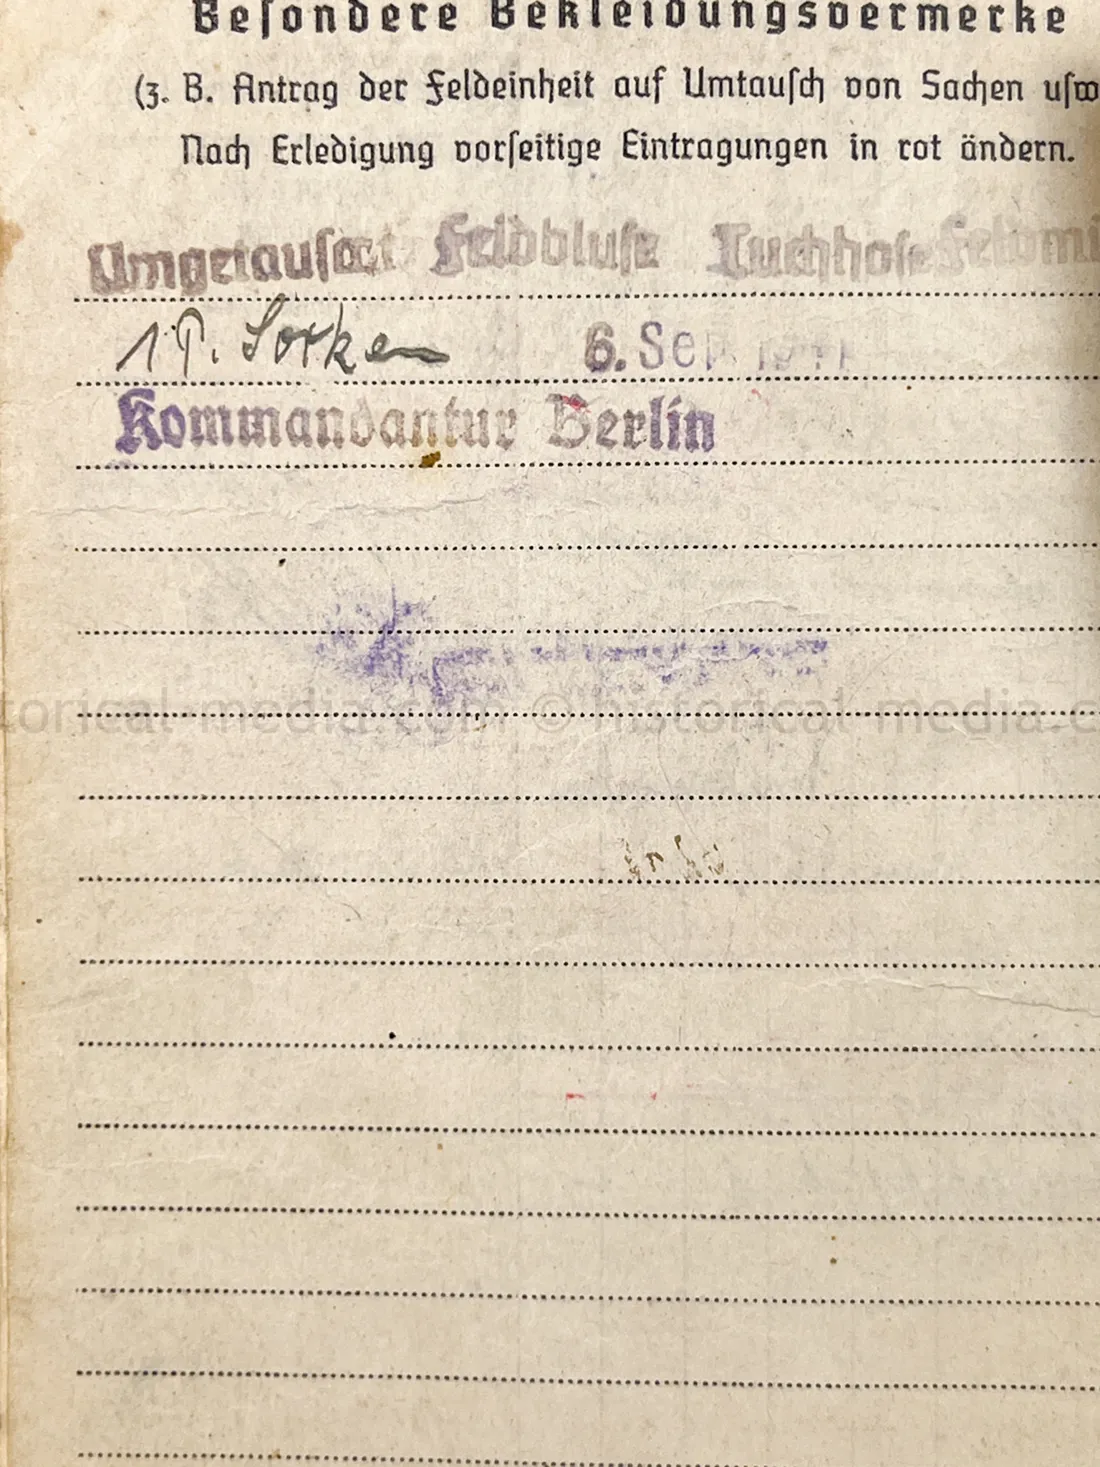 Besondere Bekleidungsvermerke
(z. B. Antrag der Feldeinheit auf Umtausch von Sachen usw
Nach Erledigung vorseitige Eintragungen in rot ändern.
Umgetauscht Feldbluse Tuchhose Feldmü
1 P. Socken 6. Sep. 1941
Kommandantur Berlin
torical-media.com © historical-media.c